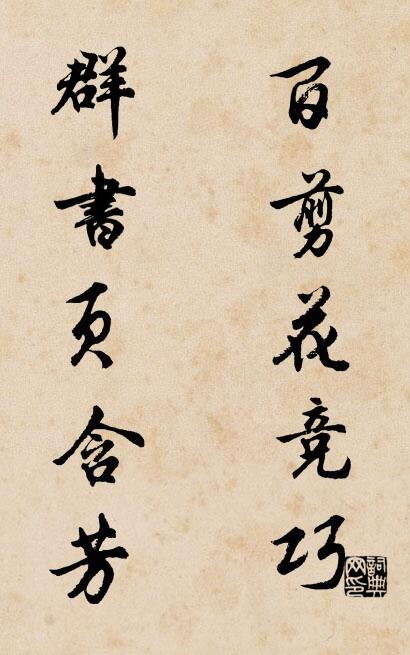 百剪花竞巧
群書页含芳
詞典网印